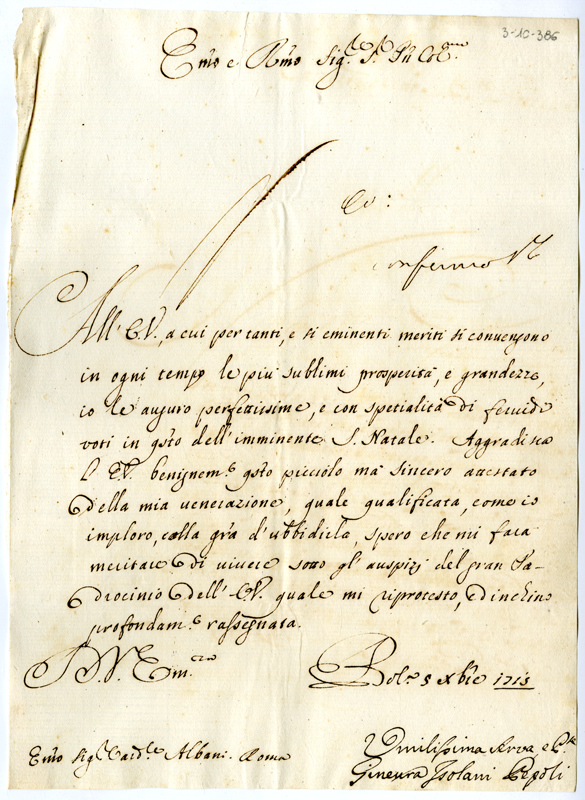 3-10-386
Emo e Rmo Sig.r
All' E.V., a cui per tanti, e si eminenti meriti si convengono
in ogni tempo le più sublimi prosperità, e grandezze,
io le auguro perfettissime, e con spetialità di fervidi
voti in qsto dell' imminente S. Natale. Aggradisca
l' E.V. benignem.e qsto picciolo mà sincero attestato
della mia venerazione, quale qualificata, come io
imploro, colla gra d' ubbidirla, spero che mi farà
meritare di vivere sotto gl' auspizj del gran Pa-
drocinio dell' E.V. quale mi riprotesto, ed inchino
profondam.e rassegnata.
D. V. Em.za
Bol.a 5 Xbre 1715
Emo Sig.r Card.le Albani. Roma
Umilissima Serva
Ginevra Isolani Pepoli